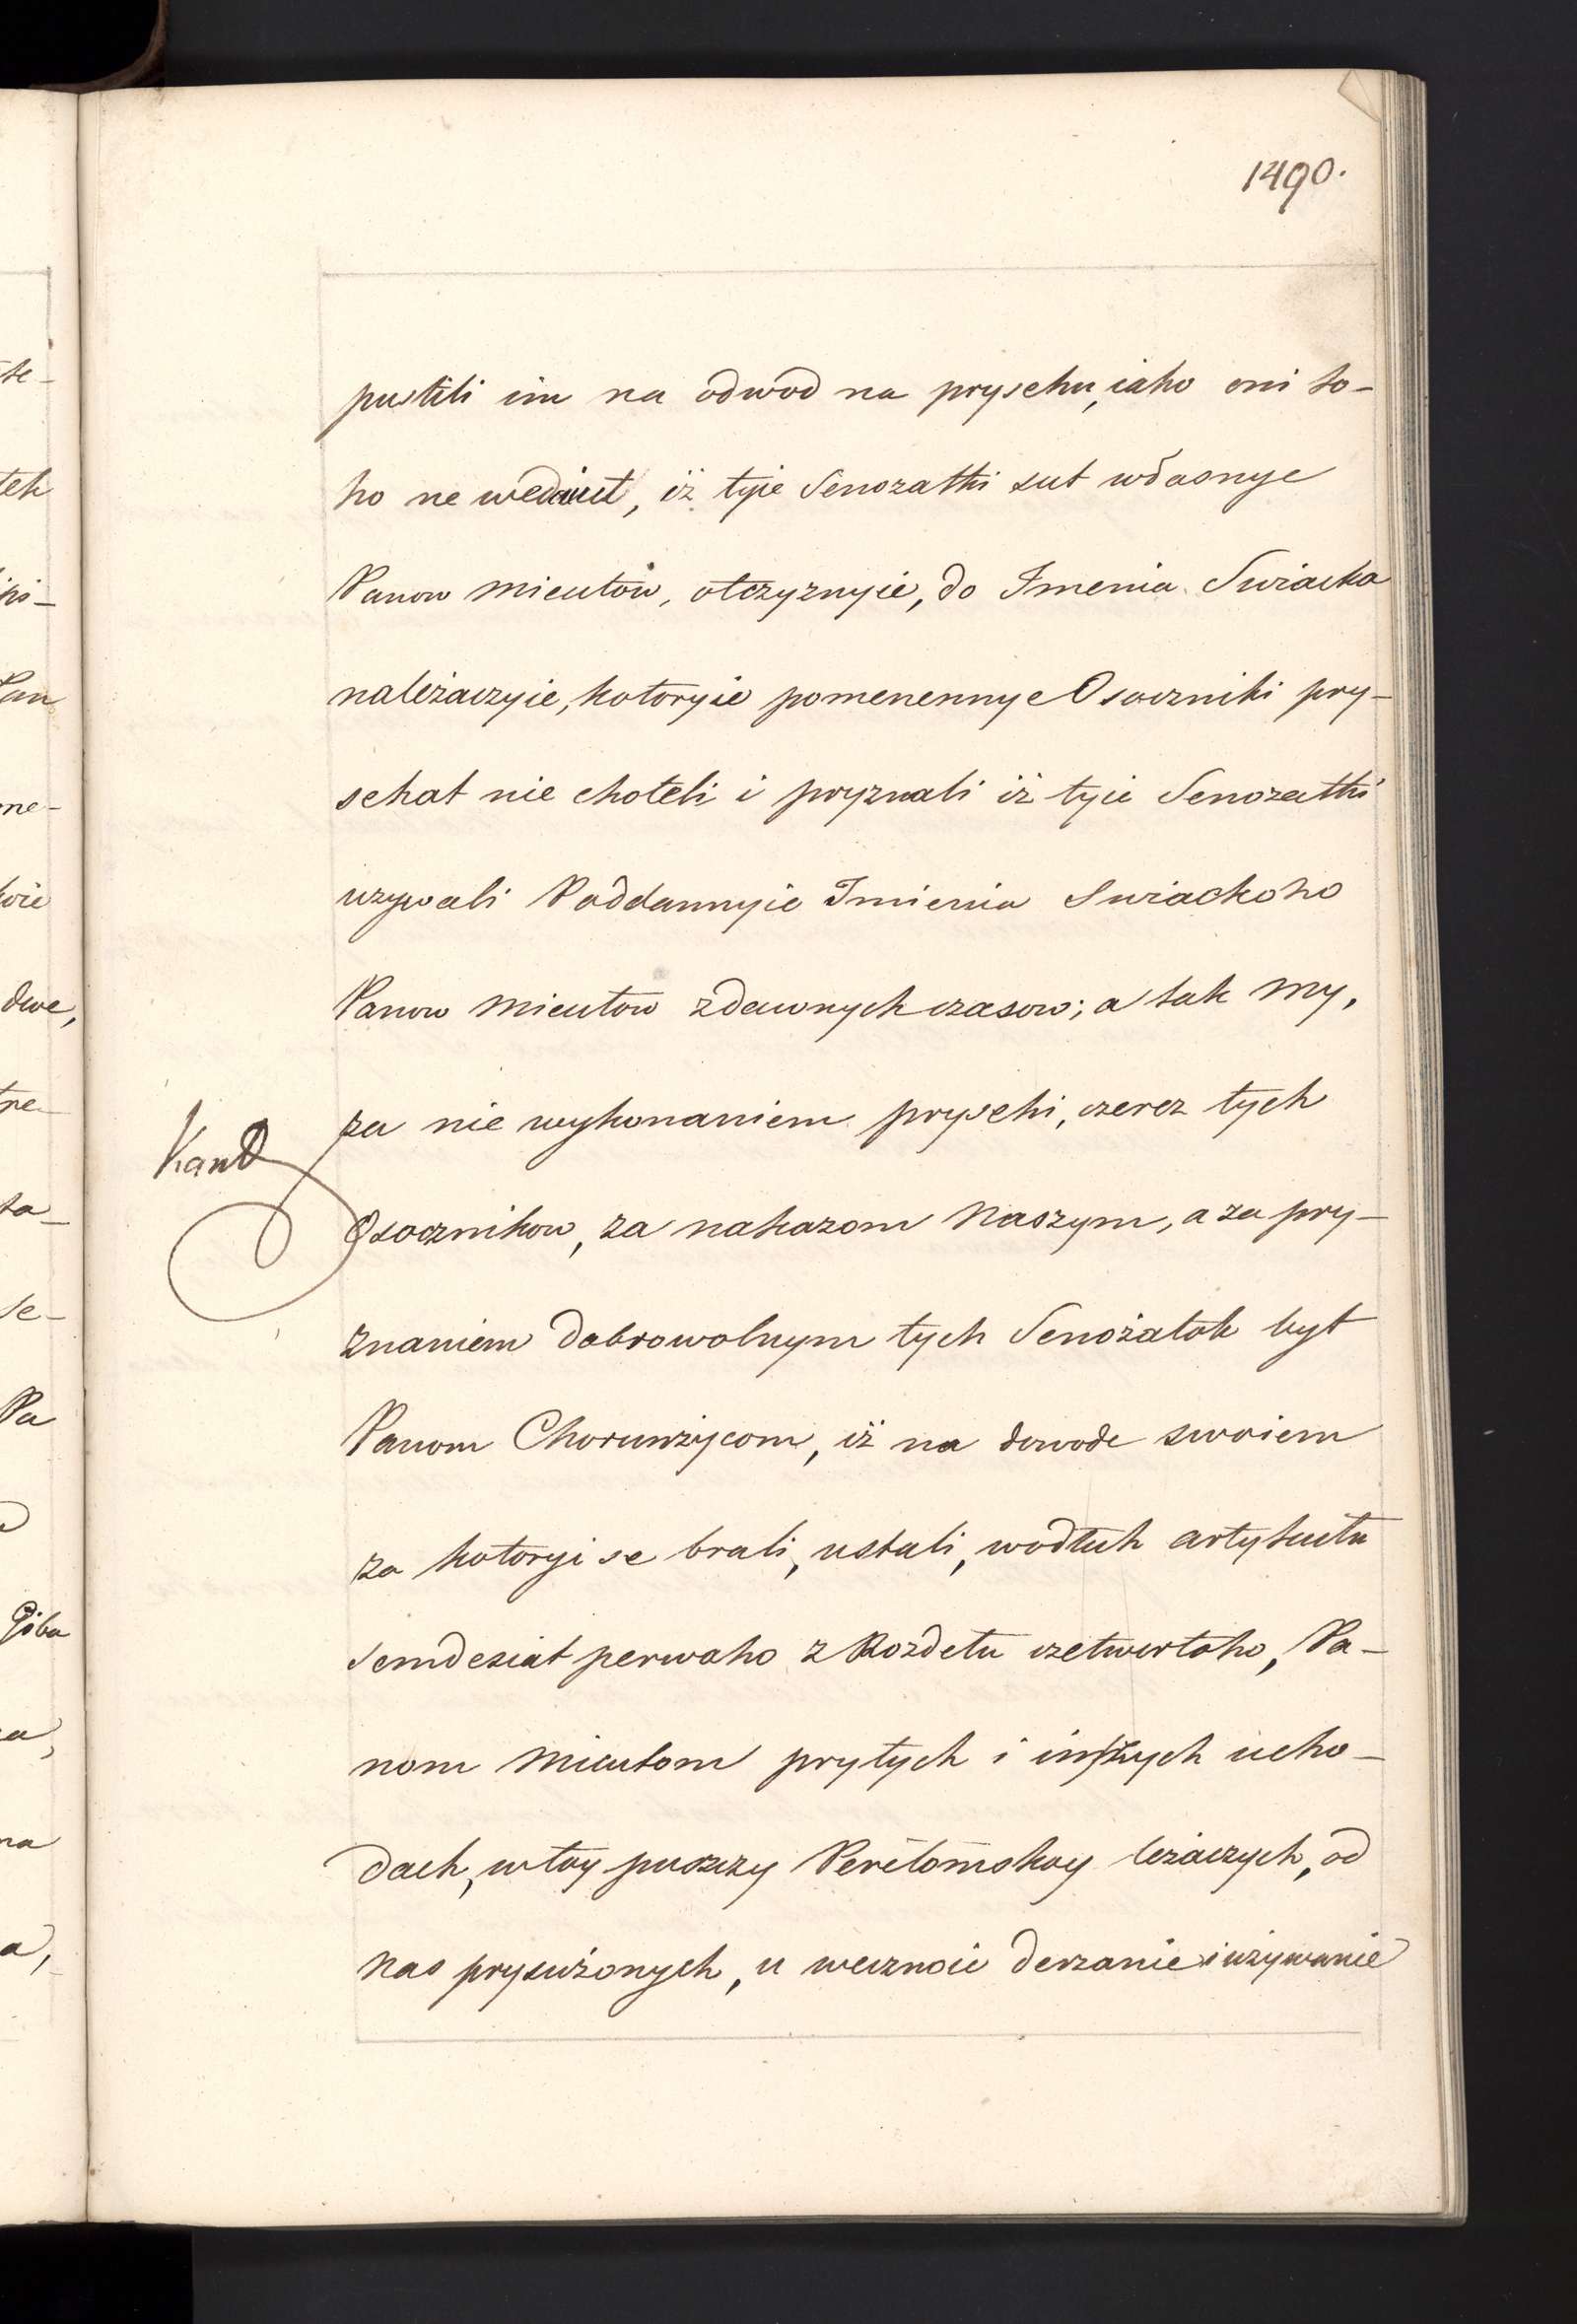 1490.
pustili im na odwod na prysehu, iako oni to-
ho ne wedaiut, iż tyie Senozatki sut własnye
Panow Micutow, otczyznyie, do Imenia Swiacka
należaczyie, kotoryie pomenennye Osoczniki pry-
sehat nie choteli i pryznali iż tyie Senozatki
uzywali Poddannyie Imienia Swiackoho
Panow Micutow zdawnych czasow; a tak my,
za nie wykonaniem prysehi, czerez tych
Osocznikow, za nakazom Naszym, a za pry-
znaniem dobrowolnym tych Senożatok byt
Panom Chorunżycom, iż na dowode swoiem
za kotoryi se brali, ustali, wodłuh artykułu
semdesiat perwaho z Rozdełu czetwertoho, Pa-
nom Micutom prytych i inszych ucho-
dach, w toy puszczy Perełomskoy leżaczych, od
Nas prysużonych, u wecznoie derzanie i używanie
Kand
te-
teh
Pan
me-
dwe,
ta-
se-
Pa
a,
na
a,